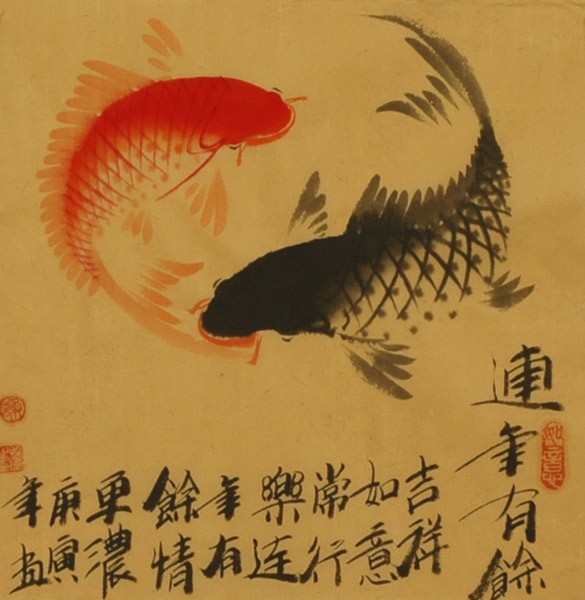 連年有餘
吉祥
如意
常行
樂连
年有
餘情
更濃
庚寅
年畫
如意